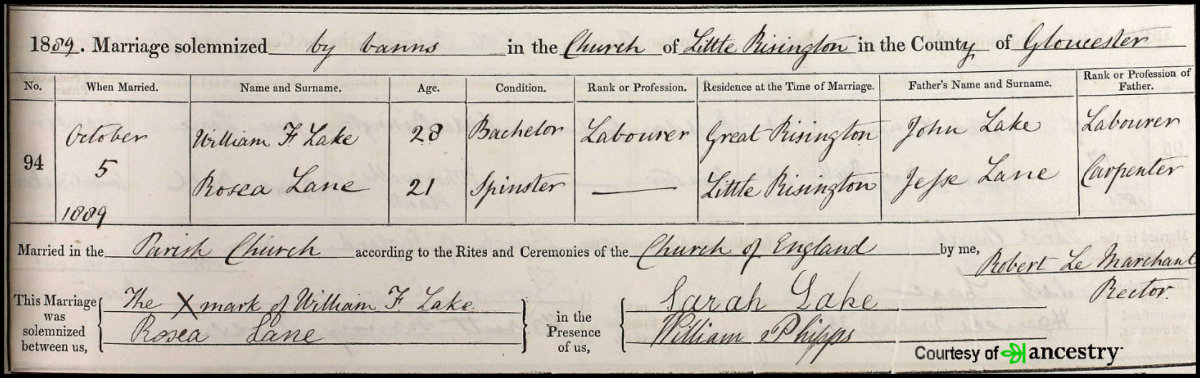 1889. Marriage solemnized by banns in the Church of Little Risington in the County of Gloucester
No. When Married. Name and Surname. Age. Condition. Rank or Profession. Residence at the Time of Marriage. Father's Name and Surname. Rank or Profession of Father.
94 October 5 1889 William F Lake 28 Bachelor Labourer Great Risington John Lake Labourer
Rosea Lane 21 Spinster Little Risington Jesse Lane Carpenter
Married in the Parish Church according to the Rites and Ceremonies of the Church of England by me, Robert Le Marchant Rector.
This Marriage was solemnized between us, The X mark of William F. Lake
Rosea Lane
in the Presence of us, Sarah Lake
William Phipps
Courtesy of ancestry